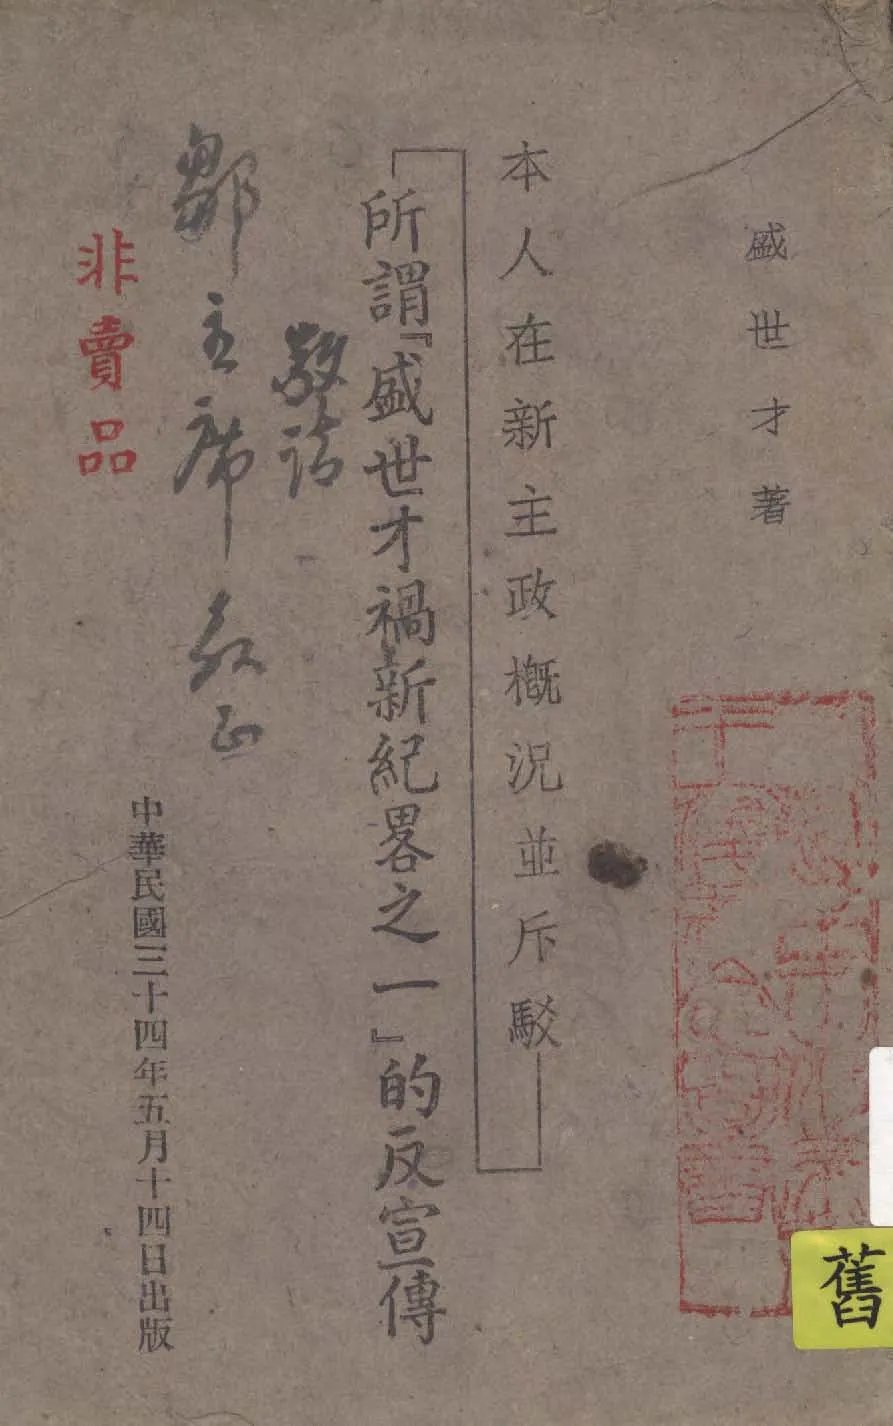 盛世才著
本人在新主政概況並斥駁
「所謂『盛世才禍新紀畧之一』的反宣傳
敬請
鄒主席教正
非賣品
中華民國三十四年五月十四日出版
舊